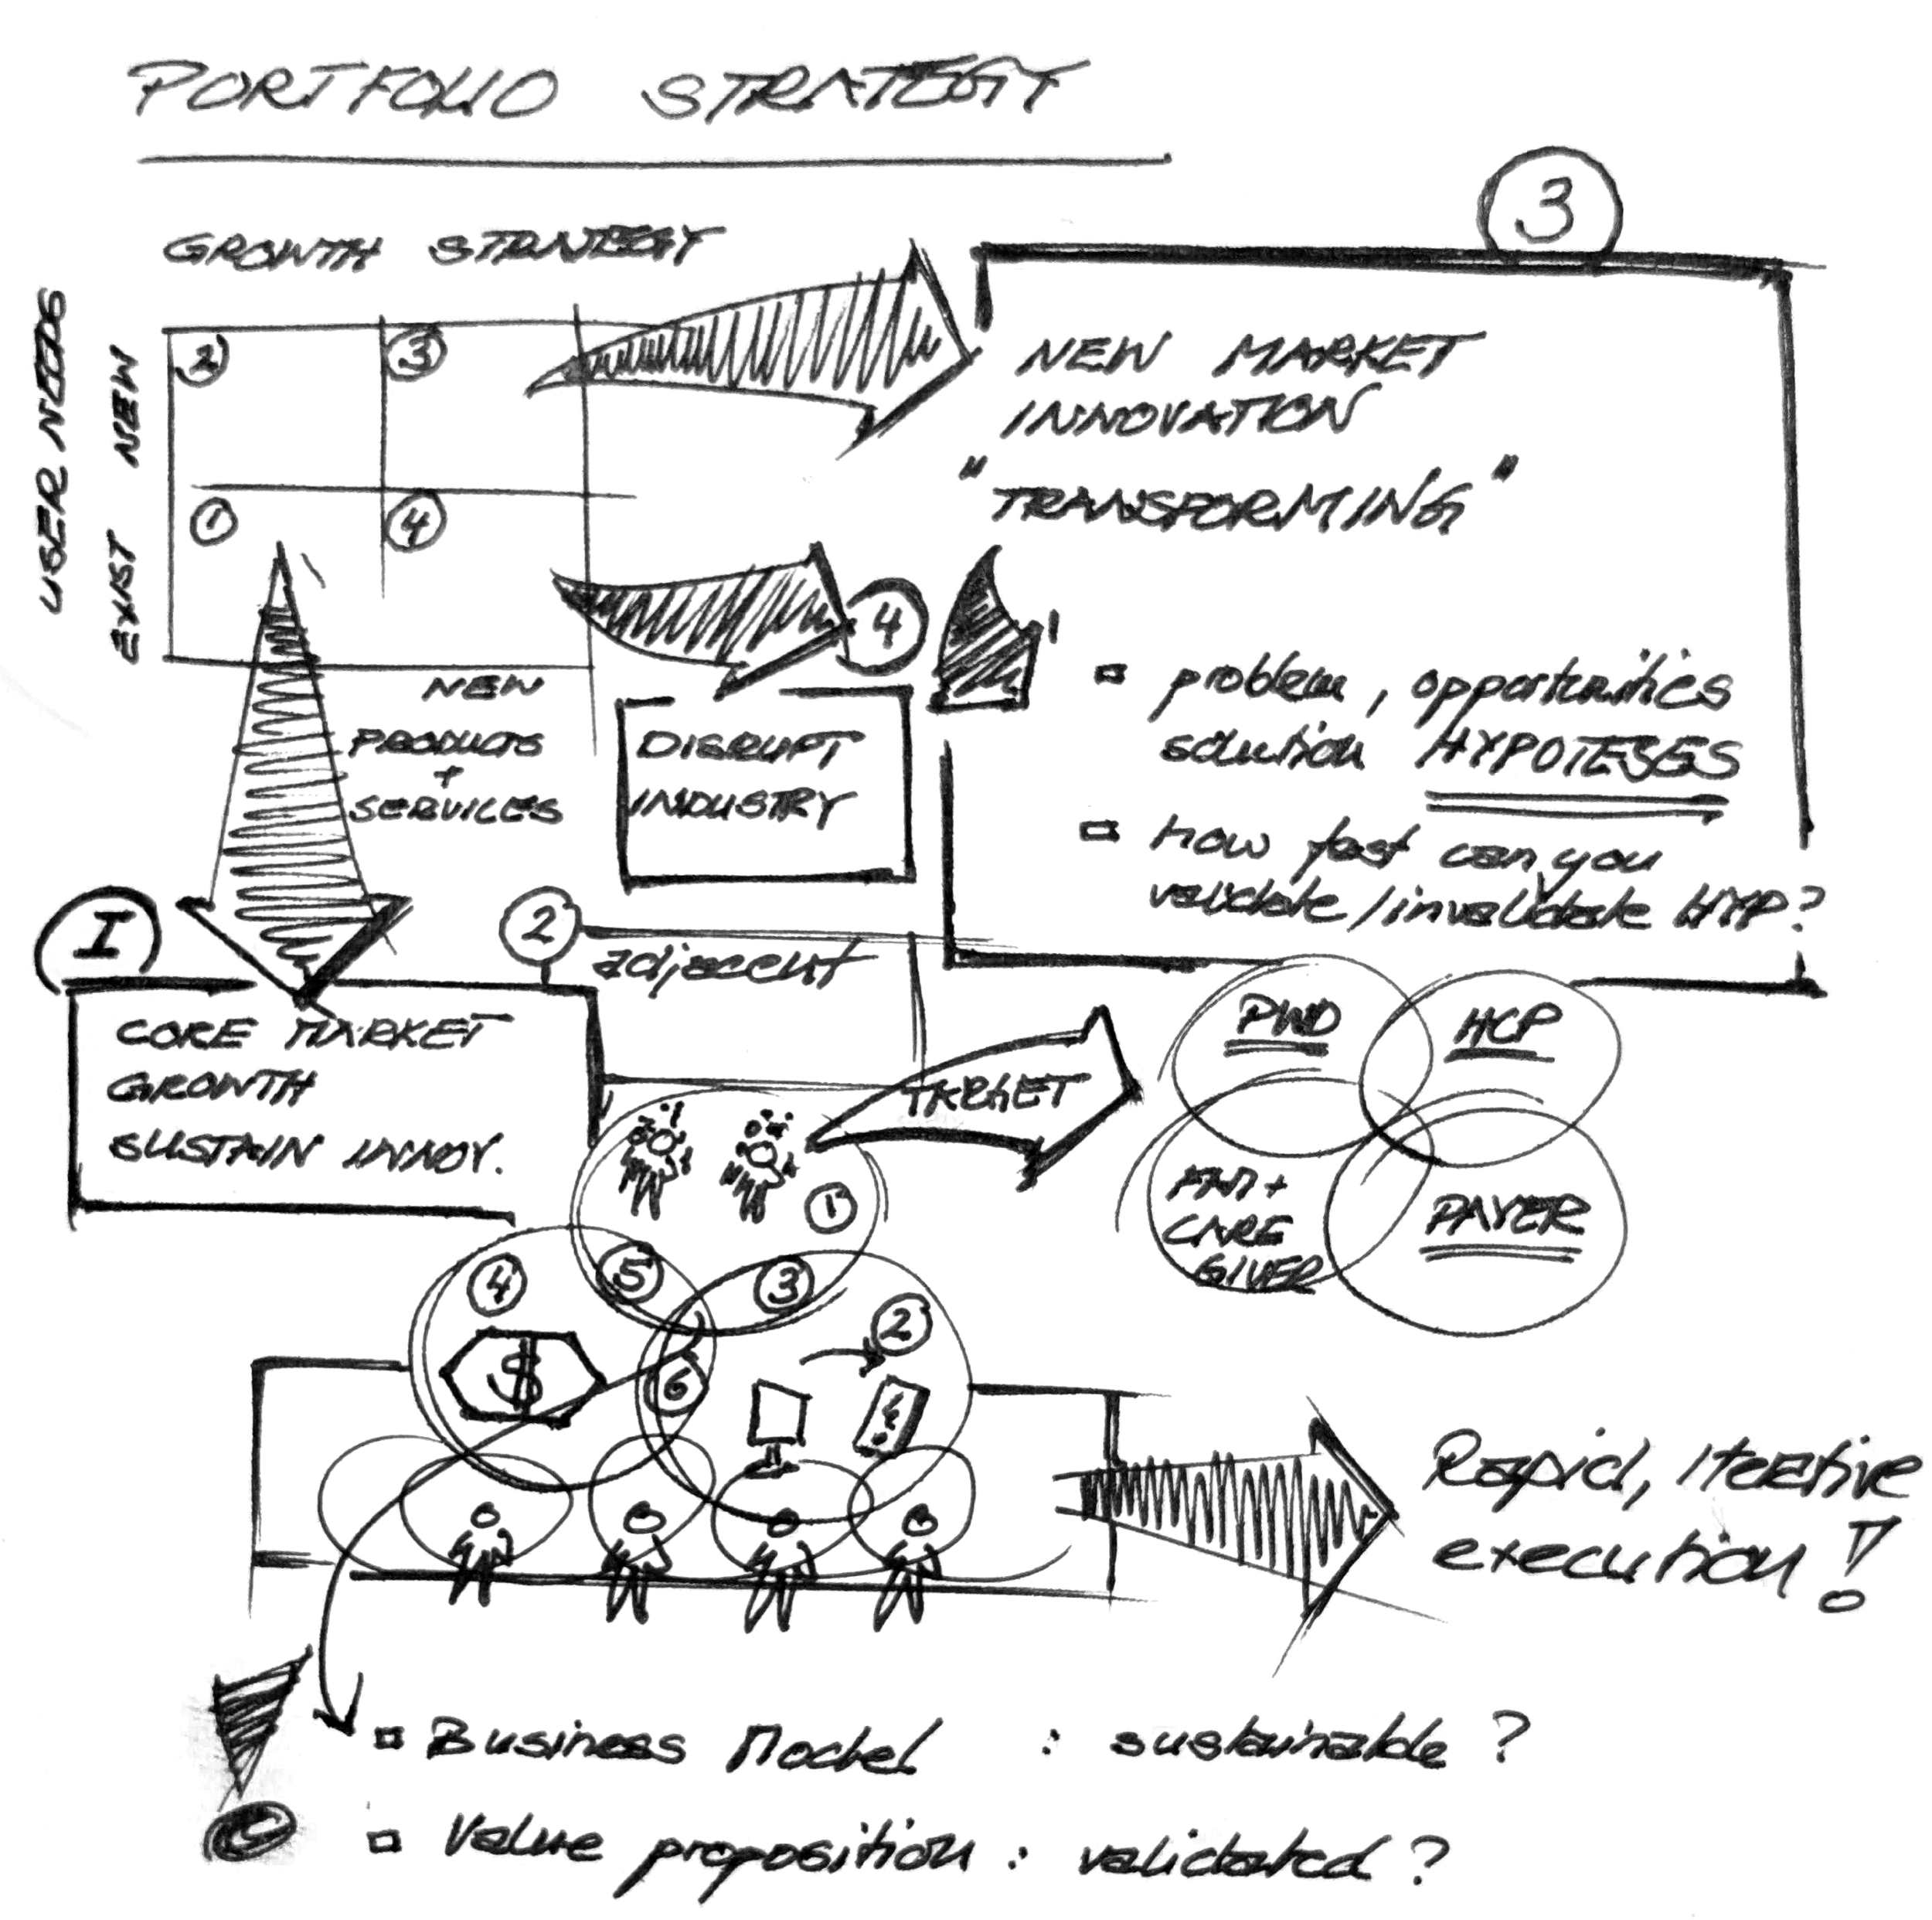 PORTFOLIO STRATEGY
GROWTH STRATEGY
USER NEEDS
EXIST NEW
2
3
1
4
NEW
PRODUCTS
+
SERVICES
3
NEW MARKET
INNOVATION
"TRANSFORMING"
problem, opportunities
solution HYPOTESES
how fast can you
validate/invalidate HYP?
4
DISRUPT
INDUSTRY
I
CORE MARKET
GROWTH
SUSTAIN INNOV.
2
adjacent
TARGET
PWD
HCP
FAM +
CARE
GIVER
PAYER
1
4
5
3
2
$
6
Rapid, iterative
execution!
Business Model : sustainable?
Value proposition : validated?